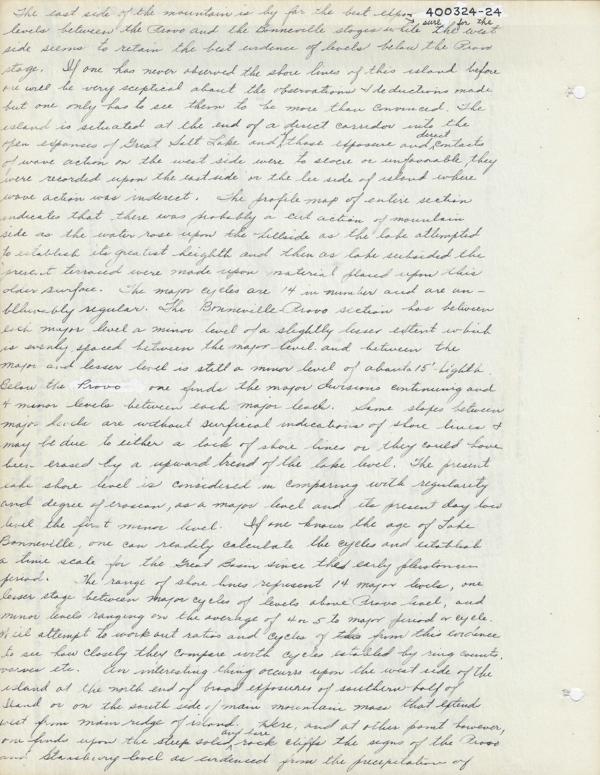 400324-24
The east side of the mountain is by far the best expo- sure for the
levels between the Provo and the Bonneville stages while the west
side seems to retain the best evidence of levels below the Provo
stage. If one has never observed the shore lines of this island before
one will be very sceptical about the observations & deductions made
but one only has to see them to be more than convinced. The
island is situated at the end of a direct corridor into the
open expanses of Great Salt Lake and if those exposure and direct contacts
of wave action on the west side were to stocie or unfavorable they
were recorded upon the east side or the lee side of island where
wave action was indirect. The profile map of entire section
indicates that there was probably a cut action of mountain
side as the water rose upon the hillside as the lake attempted
to establish its greatist heighth and then as lake subsided the
present terraced were made upon material placed upon this
older surface. The major cycles are 14 in number and are un-
blieveably regular. The Bonneville-Provo section has between
each major level a minor level of a slightly lesser extent which
is evenly spaced between the major level and between the
major and lesser level is still a minor level of about 15' highth.
Below the Provo one finds the major divisions continuing and
4 minor levels between each major leach. Some slopes between
major levels are without surficial indications of shore lines &
may be due to either a lack of shore lines or they could have
been erased by a upward trend of the lake level. The present
lake shore level is considered in comparing with regularity
and degree of erosean, as a major level and its present day low
level the first minor level. If one knows the age of Lake
Bonneville, one can readily calculate the cycles and establish
a time scale for the Great Basin since the early pleistoceen
period. The range of shore lines represent 14 major levels, one
lesser stage between major cycles of levels above Provo level, and
minor levels ranging on the average of 4 or 5 to major period or cycle.
Will attempt to work out ratios and cycles of this from this evidence
to see how closely they compare with cycles establed by ring counts,
varves etc. An interesting thing occurrs upon the west side of the
island at the north end of broad exposures of southern half of
Island or on the south side of main mountain mass that extend
west from main ridge of island. Here, and at other point however,
one finds upon the steep solid any bare rock cliffs the signs of the Provo
and Stansbury level as evidenced from the precipitation of